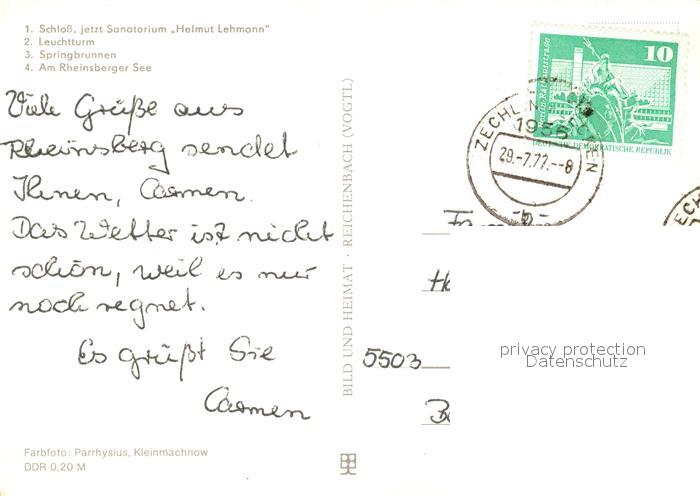 1. Schloß, jetzt Sanatorium „Helmut Lehmann"
2. Leuchtturm
3. Springbrunnen
4. Am Rheinsberger See
Viele Grüße aus
Rheinsberg sendet
Ihnen, Carmen.
Das Wetter ist nicht
schön, weil es nur
noch regnet.
Es grüßt Sie
Carmen
Farbfoto: Parrhysius, Kleinmachnow
DDR 0,20 M
BILD UND HEIMAT · REICHENBACH (VOGTL)
10
Berlin · Rathausstraße
DEUTSCHE DEMOKRATISCHE REPUBLIK
ZECHLIN
1955
29.-7.77.--8
-b-
5503
privacy protection
Datenschutz